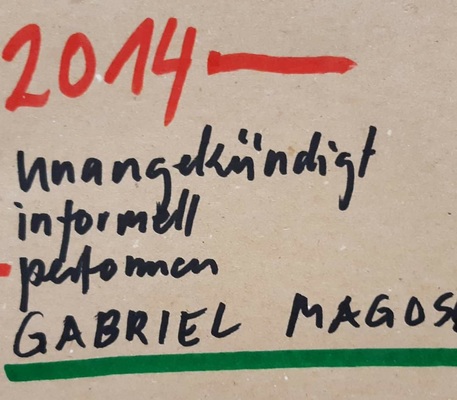 2014 —
unangekündigt
informell
performen
GABRIEL MAGOS